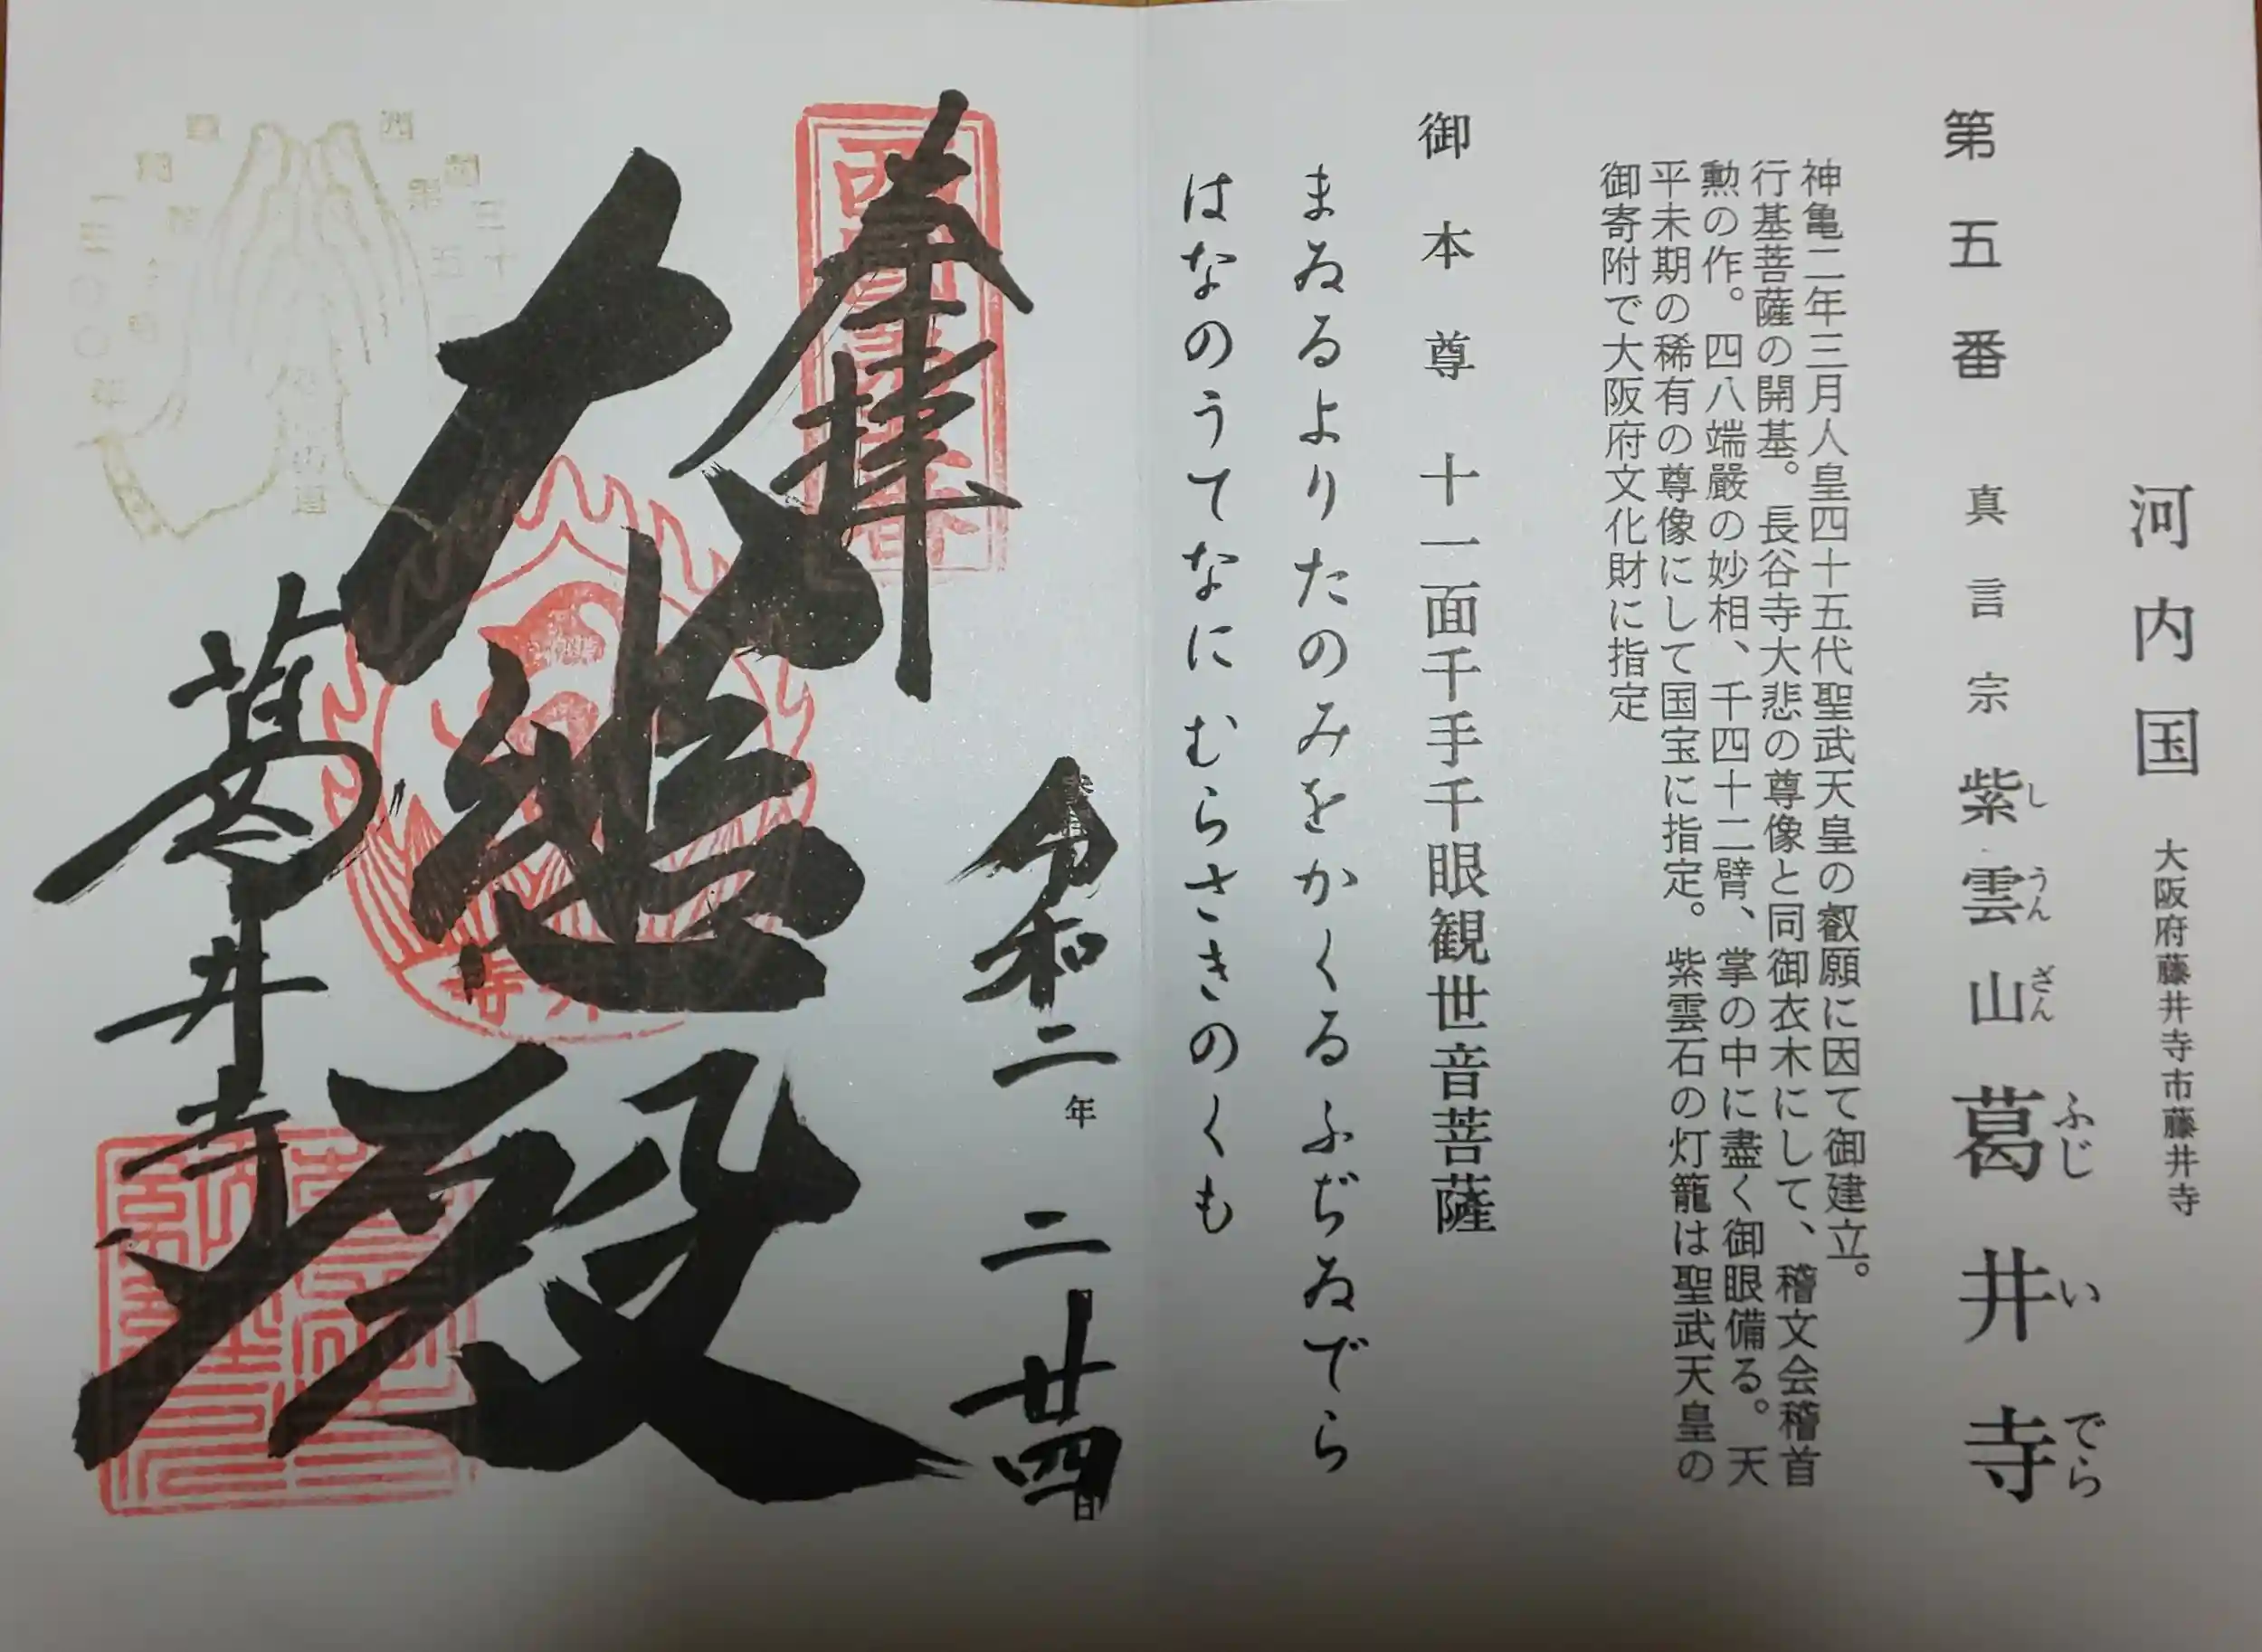 河内国 大阪府藤井寺市藤井寺
第五番 真言宗 紫雲山 葛井寺
しうんざん ふじいでら
神亀二年三月人皇四十五代聖武天皇の叡願に因て御建立。
行基菩薩の開基。長谷寺大悲の尊像と同御衣木にして、稽文会稽首
勲の作。四八端嚴の妙相、千四十二臂、掌の中に盡く御眼備る。天
平末期の稀有の尊像にして国宝に指定。紫雲石の灯籠は聖武天皇の
御寄附で大阪府文化財に指定
御本尊 十一面千手千眼観世音菩薩
まゐるよりたのみをかくるふぢゐでら
はなのうてなにむらさきのくも
奉拝
令和二年 二 廿四日
大悲殿
葛井寺